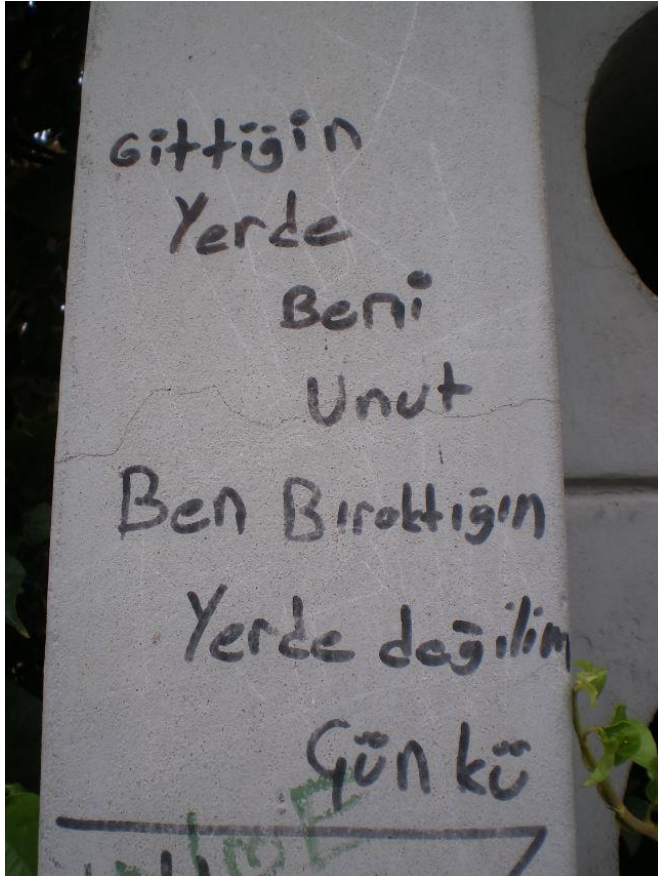 Gittiğin
Yerde
Beni
Unut
Ben Bıraktığın
Yerde değilim
Çünkü